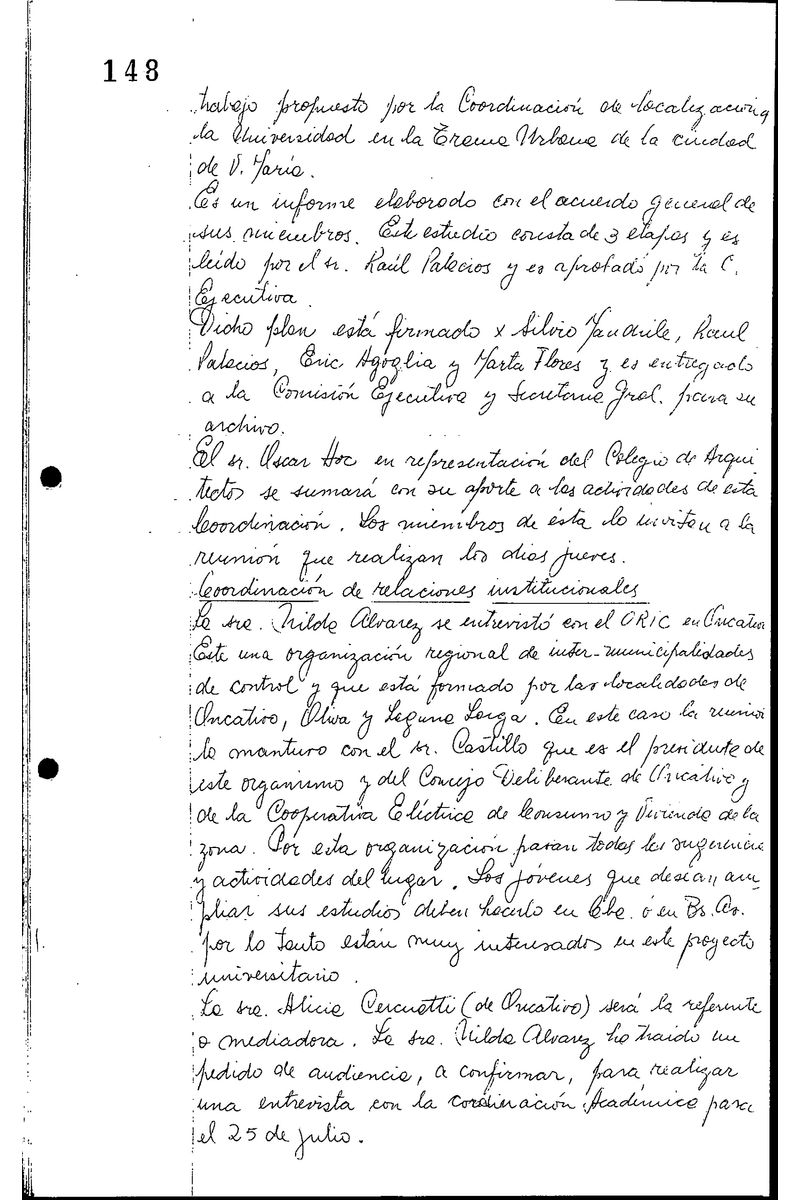 148
trabajo propuesto por la Coordinación de localización
la Universidad en la Trama Urbana de la ciudad
de V. María.
Es un informe elaborado con el acuerdo general de
sus miembros. Este estudio consta de 3 etapas y es
leído por el sr. Raúl Palacios y es aprobado por la C.
Ejecutiva.
Dicho plan está firmado x Silvio Mandrile, Raul
Palacios, Eric Agoglia y Marta Flores y es entregado
a la Comisión Ejecutiva y Secretaria Gral. para su
archivo.
El sr. Oscar Hoc en representación del Colegio de Arqui
tectos se sumará con su aporte a las actividades de esta
Coordinación. Los miembros de ésta lo invitan a la
reunión que realizan los dias jueves.
Coordinación de relaciones institucionales
La sra. Nilda Alvarez se entrevistó con el ORIC en Oncativo
Este una organización regional de inter-municipalidades
de control y que está formado por las localidades de
Oncativo, Oliva y Laguna Larga. En este caso la reunió
la mantuvo con el sr. Castillo que es el presidente de
este organismo y del Concejo Deliberante de Oncativo y
de la Cooperativa Eléctrica de Consumo y Vivienda de la
zona. Por esta organización pasan todas las sugerencias
y actividades del lugar. Los jóvenes que desean am
pliar sus estudios deben hacerlo en Cba. ó en Bs. As.
por lo tanto están muy interesados en este proyecto
universitario.
La sra. Alicia Cercuatti (de Oncativo) será la referente
o mediadora. La sra. Nilda Alvarez ha traido un
pedido de audiencia, a confirmar, para realizar
una entrevista con la cordinación Académica para
el 25 de julio.